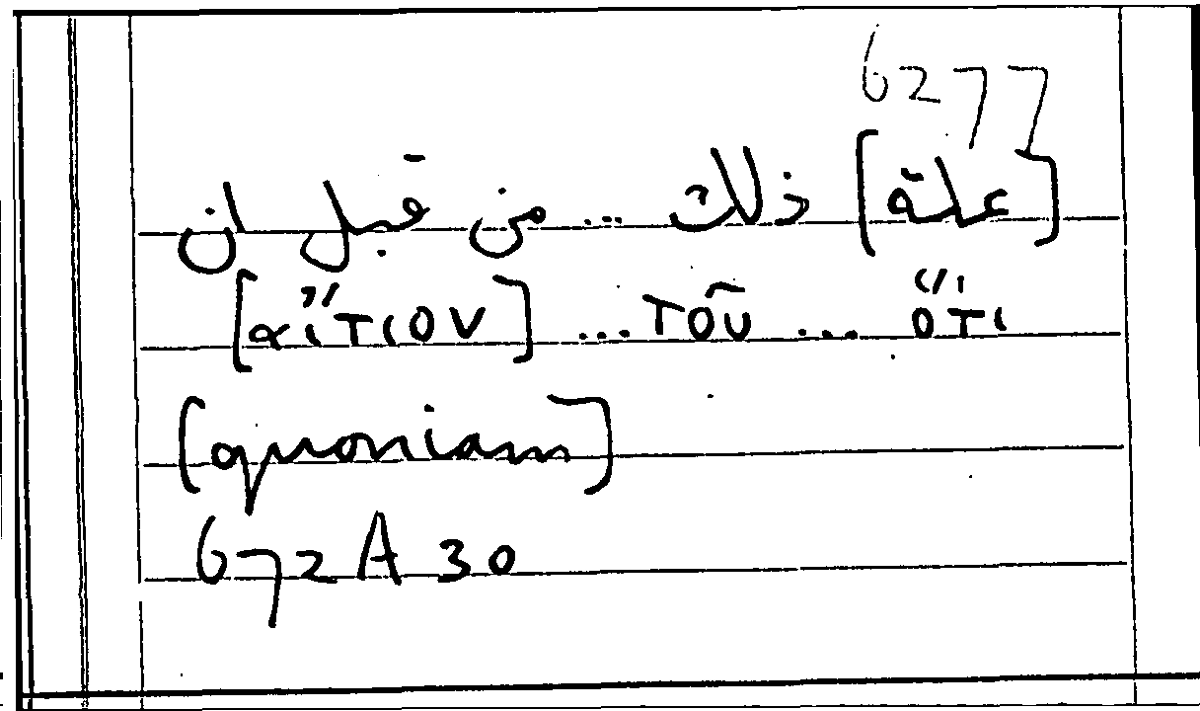 6277
[علّة] ذلك ... من قبل ان
[αἴτιον] ... τοῦ ... ὅτι
[quoniam]
672A 30